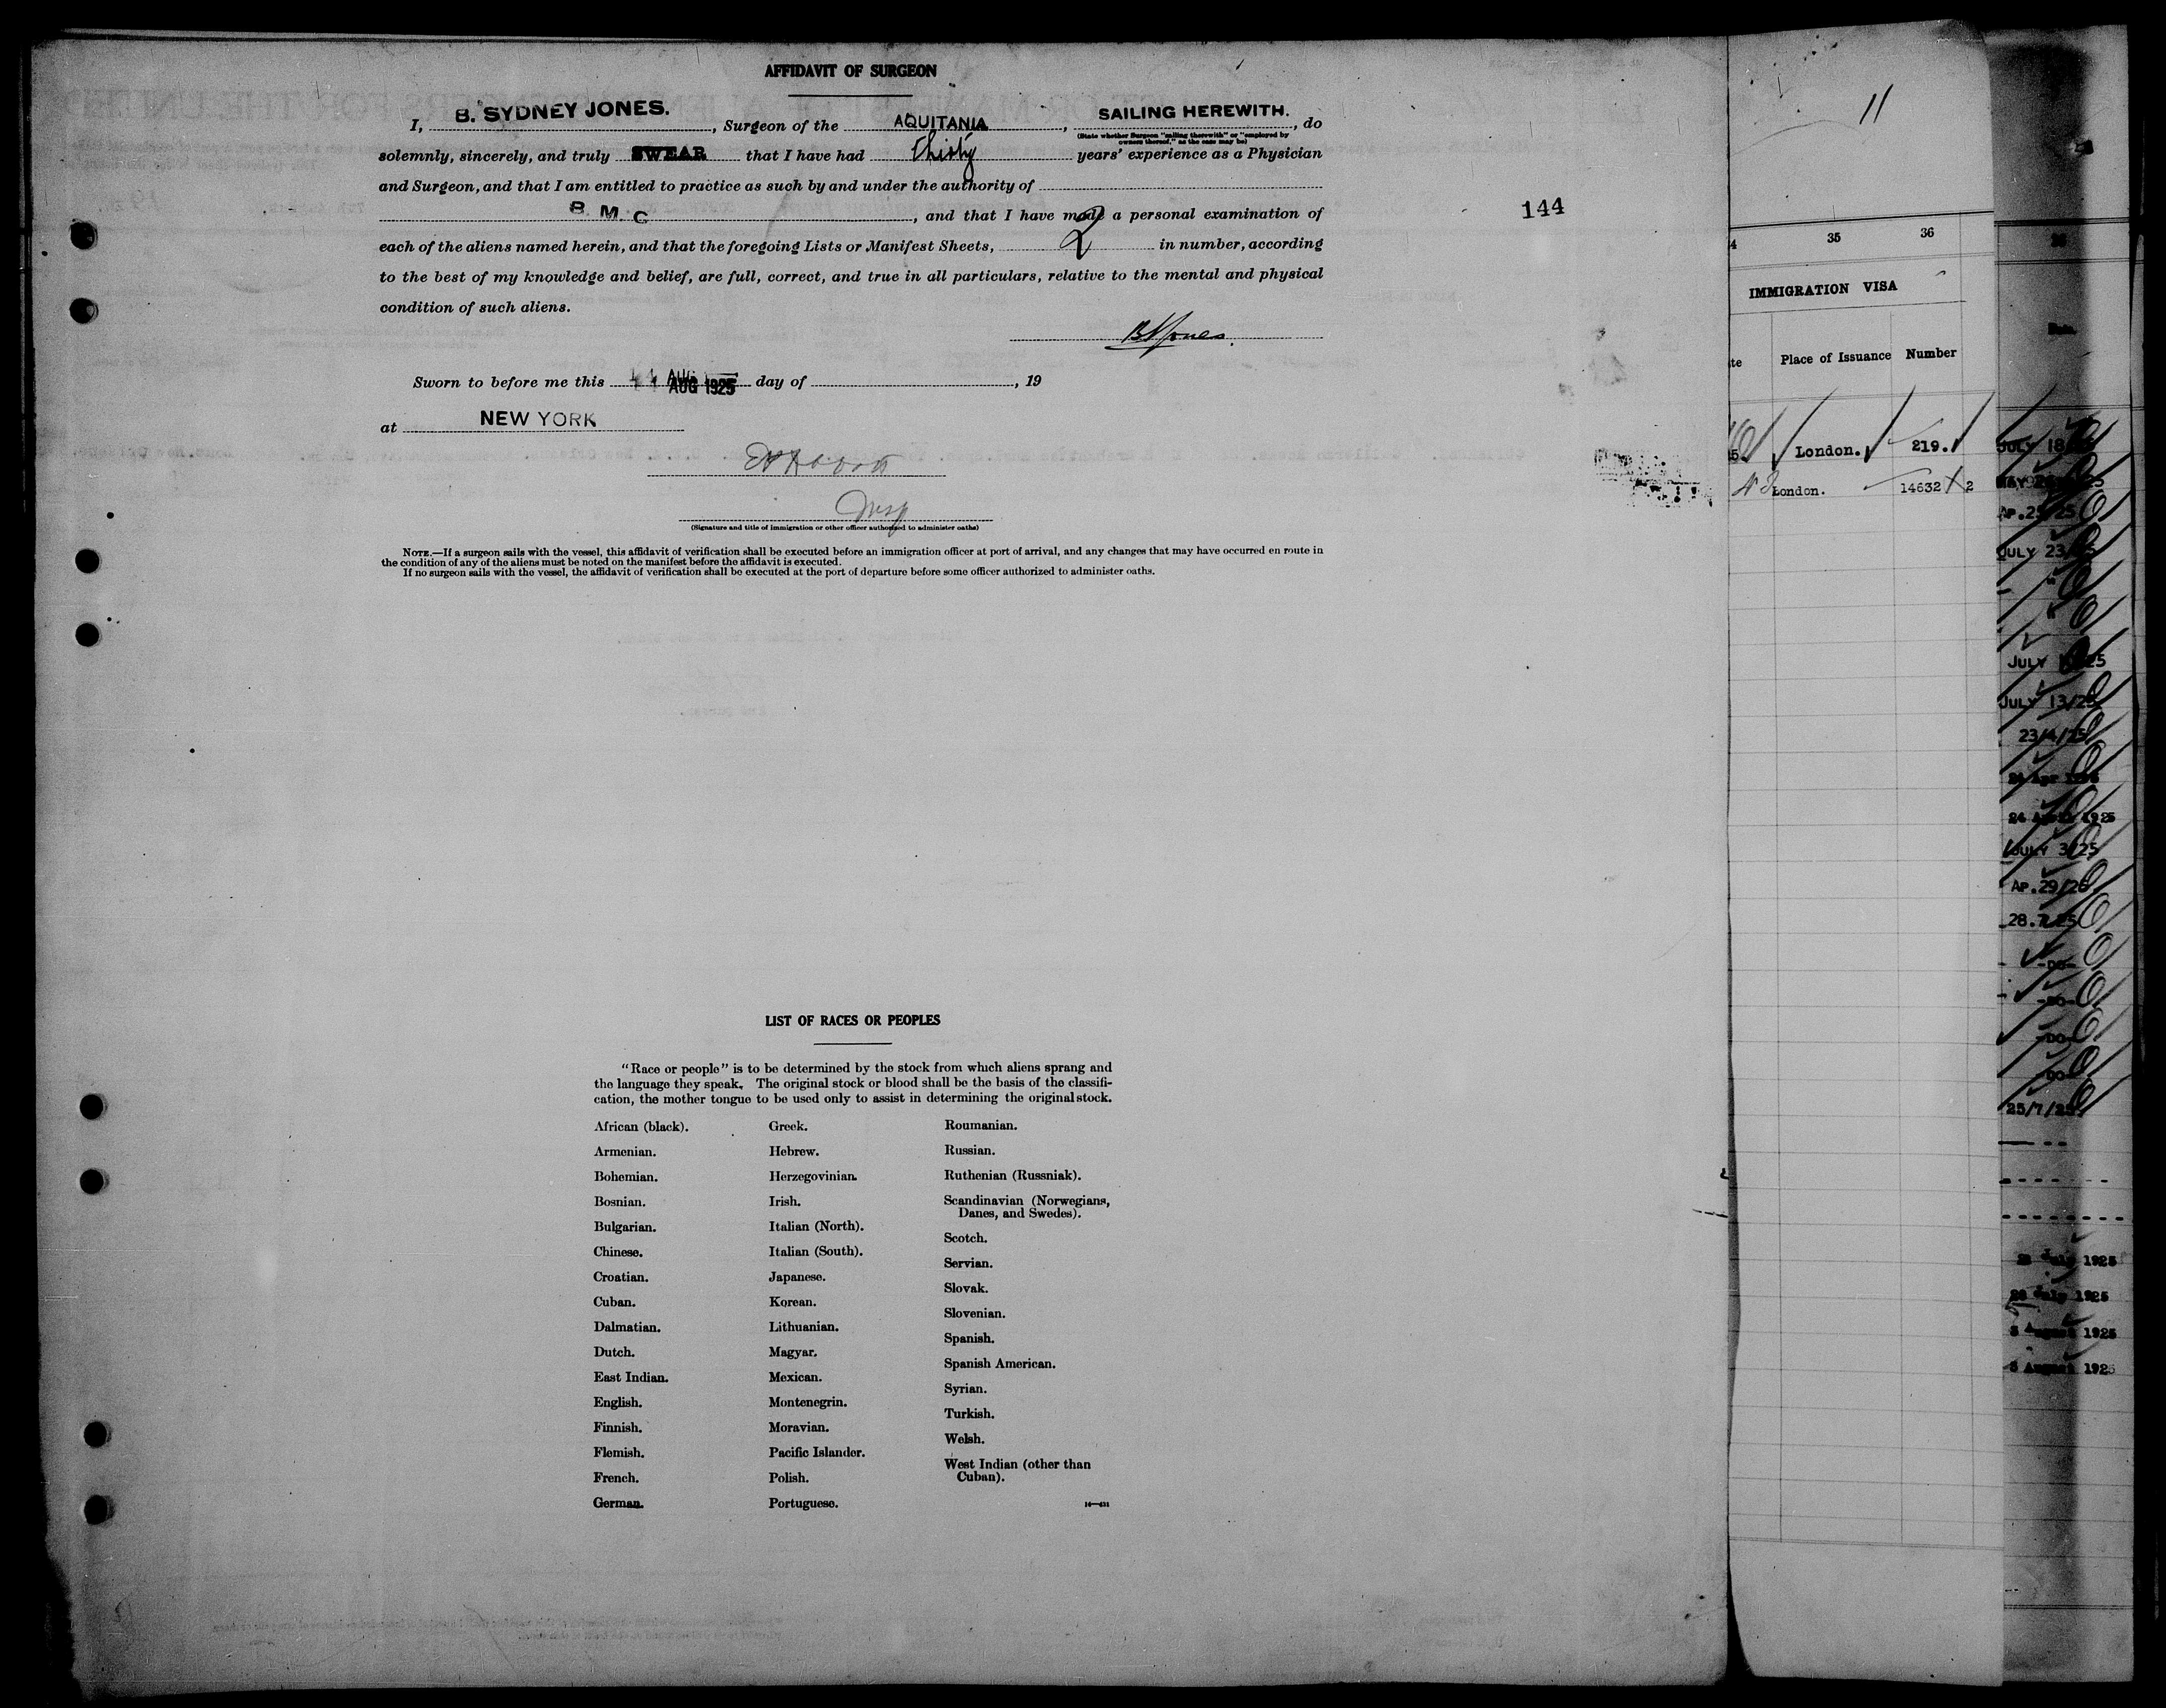 AFFIDAVIT OF SURGEON
I, B. SYDNEY JONES. , Surgeon of the AQUITANIA , SAILING HEREWITH. , do
(State whether Surgeon "sailing therewith" or "employed by
owners thereof," as the case may be)
solemnly, sincerely, and truly SWEAR that I have had Thirty years' experience as a Physician
and Surgeon, and that I am entitled to practice as such by and under the authority of
B M C , and that I have made a personal examination of
144
each of the aliens named herein, and that the foregoing Lists or Manifest Sheets, 2 in number, according
to the best of my knowledge and belief, are full, correct, and true in all particulars, relative to the mental and physical
condition of such aliens.
BSJones.
Sworn to before me this AUG 1925 day of , 19
at NEW YORK
Insp
(Signature and title of immigration or other officer authorized to administer oaths)
NOTE.—If a surgeon sails with the vessel, this affidavit of verification shall be executed before an immigration officer at port of arrival, and any changes that may have occurred en route in
the condition of any of the aliens must be noted on the manifest before the affidavit is executed.
If no surgeon sails with the vessel, the affidavit of verification shall be executed at the port of departure before some officer authorized to administer oaths.
LIST OF RACES OR PEOPLES
"Race or people" is to be determined by the stock from which aliens sprang and
the language they speak. The original stock or blood shall be the basis of the classifi-
cation, the mother tongue to be used only to assist in determining the original stock.
African (black).
Armenian.
Bohemian.
Bosnian.
Bulgarian.
Chinese.
Croatian.
Cuban.
Dalmatian.
Dutch.
East Indian.
English.
Finnish.
Flemish.
French.
German.
Greek.
Hebrew.
Herzegovinian.
Irish.
Italian (North).
Italian (South).
Japanese.
Korean.
Lithuanian.
Magyar.
Mexican.
Montenegrin.
Moravian.
Pacific Islander.
Polish.
Portuguese.
Roumanian.
Russian.
Ruthenian (Russniak).
Scandinavian (Norwegians,
Danes, and Swedes).
Scotch.
Servian.
Slovak.
Slovenian.
Spanish.
Spanish American.
Syrian.
Turkish.
Welsh.
West Indian (other than
Cuban).
11
4 35 36
IMMIGRATION VISA
te Place of Issuance Number
London. 219.
London. 14632 2
Date.
JULY 18
AP.25/25
JULY 23/25
JULY 25
JULY 13/25
23/4/25
24 Apr
24 April 1925
JULY 3/25
AP.29/25
28.7.25
-DO-
-DO-
-DO-
-DO-
25/7/25
July 1925
July 1925
August 1925
August 1925